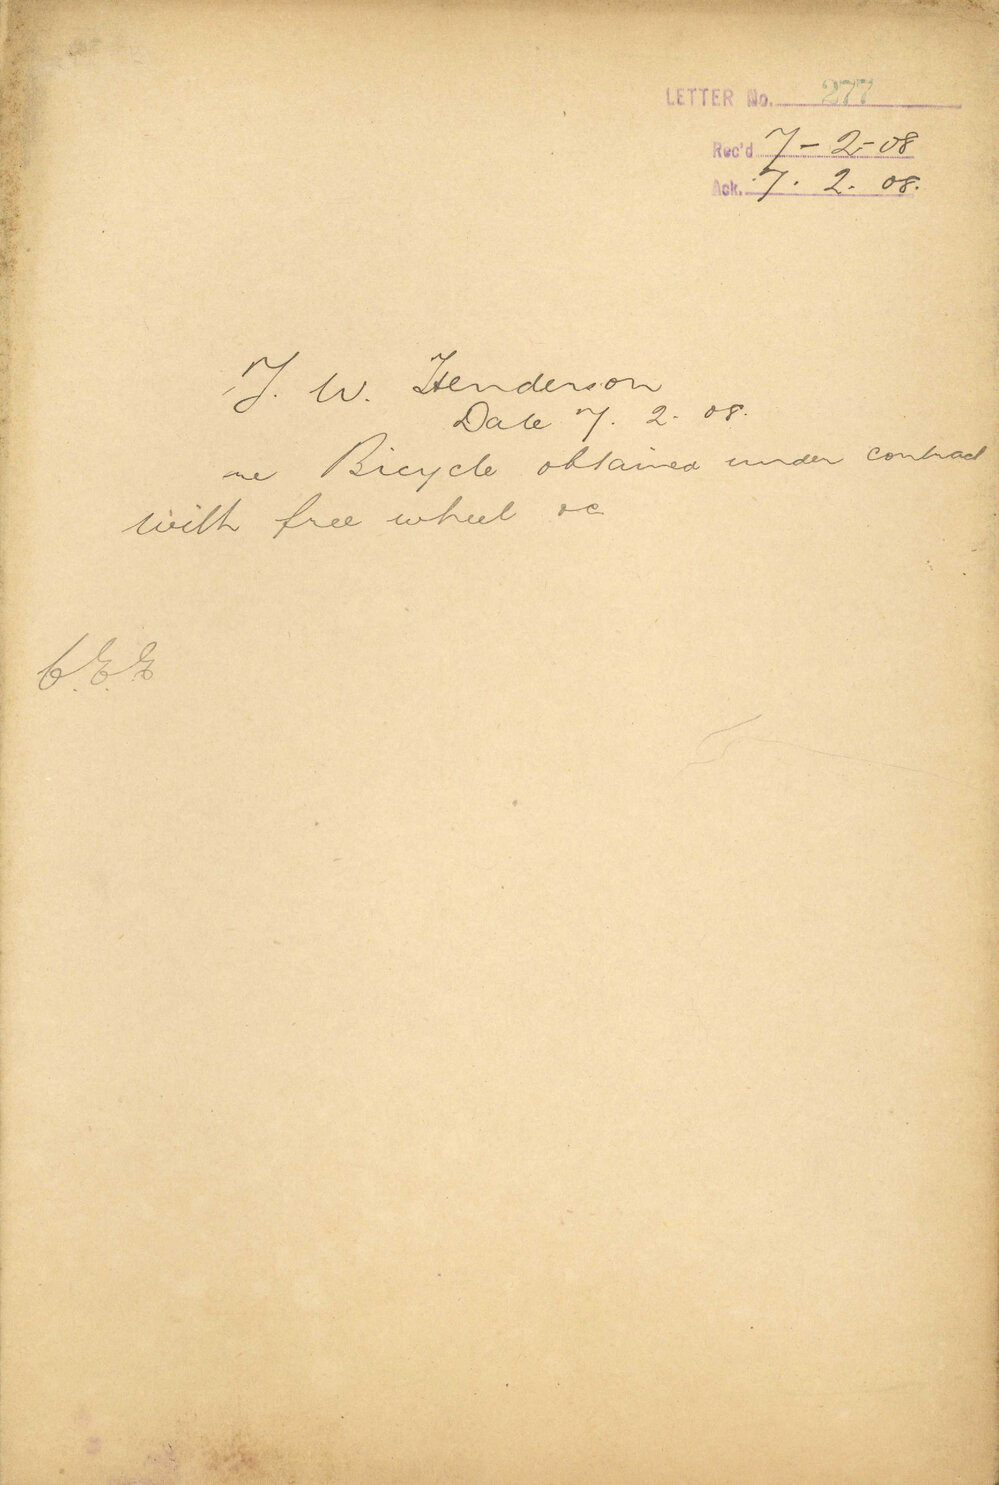 LETTER No. 277
Rec'd 7-2-08
Ack. 7. 2. 08.
J. W. Henderson
Date 7. 2. 08.
re Bicycle obtained under contract
with free wheel &c
C.E.E